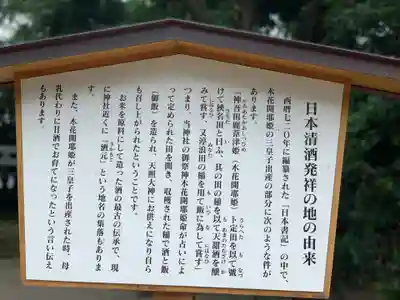 日本清酒発祥の地の由来
西暦七二〇年に編纂された『日本書記』の中で、
木花開耶姫の三皇子出産の部分に次のような件が
あります。
「神吾田鹿葦津姫（木花開耶姫）卜定田を以て號
けて狭名田と曰ふ、其の田の稲を以て天甜酒を醸
みて嘗す、又渟浪田の稲を用て飯に為して嘗す」
つまり、当神社の御祭神木花開耶姫命が占いによ
って定められた田を開き、収穫された稲で酒と飯
（御飯）を造られ、天照大神にお供えになり自ら
も召し上がられたということです。
お米を原料にして造った酒の最古の伝承で、現
に神社近くに「酒元」という地名の集落もありま
す。
また、木花開耶姫が三皇子を出産された時、母
乳代わりに甘酒でお育てになったという言い伝え
もあります